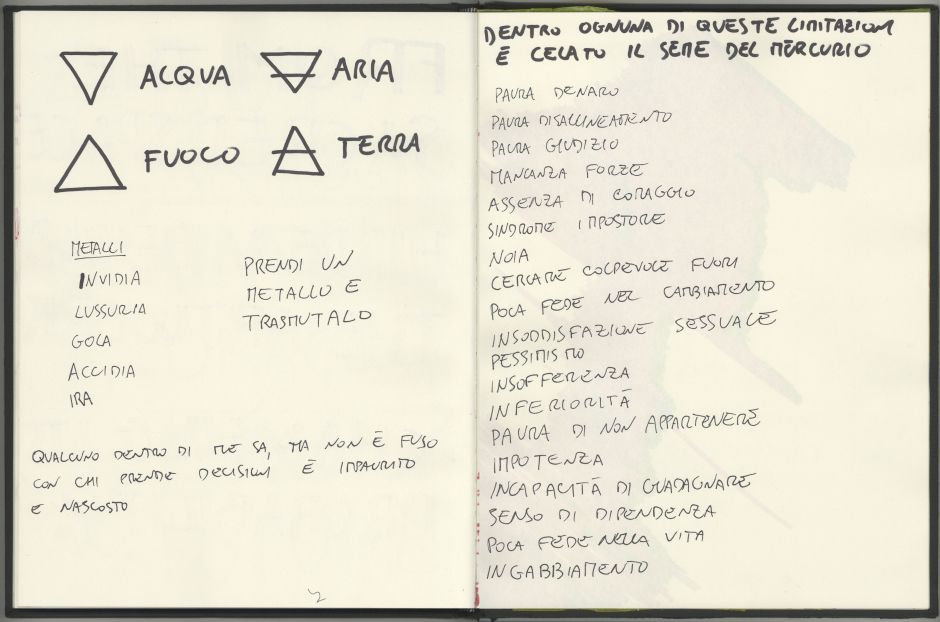 ACQUA
ARIA
FUOCO
TERRA
METALLI
INVIDIA
LUSSURIA
GOLA
ACCIDIA
IRA
PRENDI UN
METALLO E
TRASMUTALO
QUALCUNO DENTRO DI ME SA, MA NON È FUSO
CON CHI PRENDE DECISIONI È IMPAURITO
E NASCOSTO
DENTRO OGNUNA DI QUESTE LIMITAZIONI
È CELATO IL SEME DEL MERCURIO
PAURA DENARO
PAURA DISALLINEAMENTO
PAURA GIUDIZIO
MANCANZA FORZE
ASSENZA DI CORAGGIO
SINDROME IMPOSTORE
NOIA
CERCARE COLPEVOLE FUORI
POCA FEDE NEL CAMBIAMENTO
INSODDISFAZIONE SESSUALE
PESSIMISMO
INSOFFERENZA
INFERIORITÀ
PAURA DI NON APPARTENERE
IMPOTENZA
INCAPACITÀ DI GUADAGNARE
SENSO DI DIPENDENZA
POCA FEDE NELLA VITA
INGABBIAMENTO